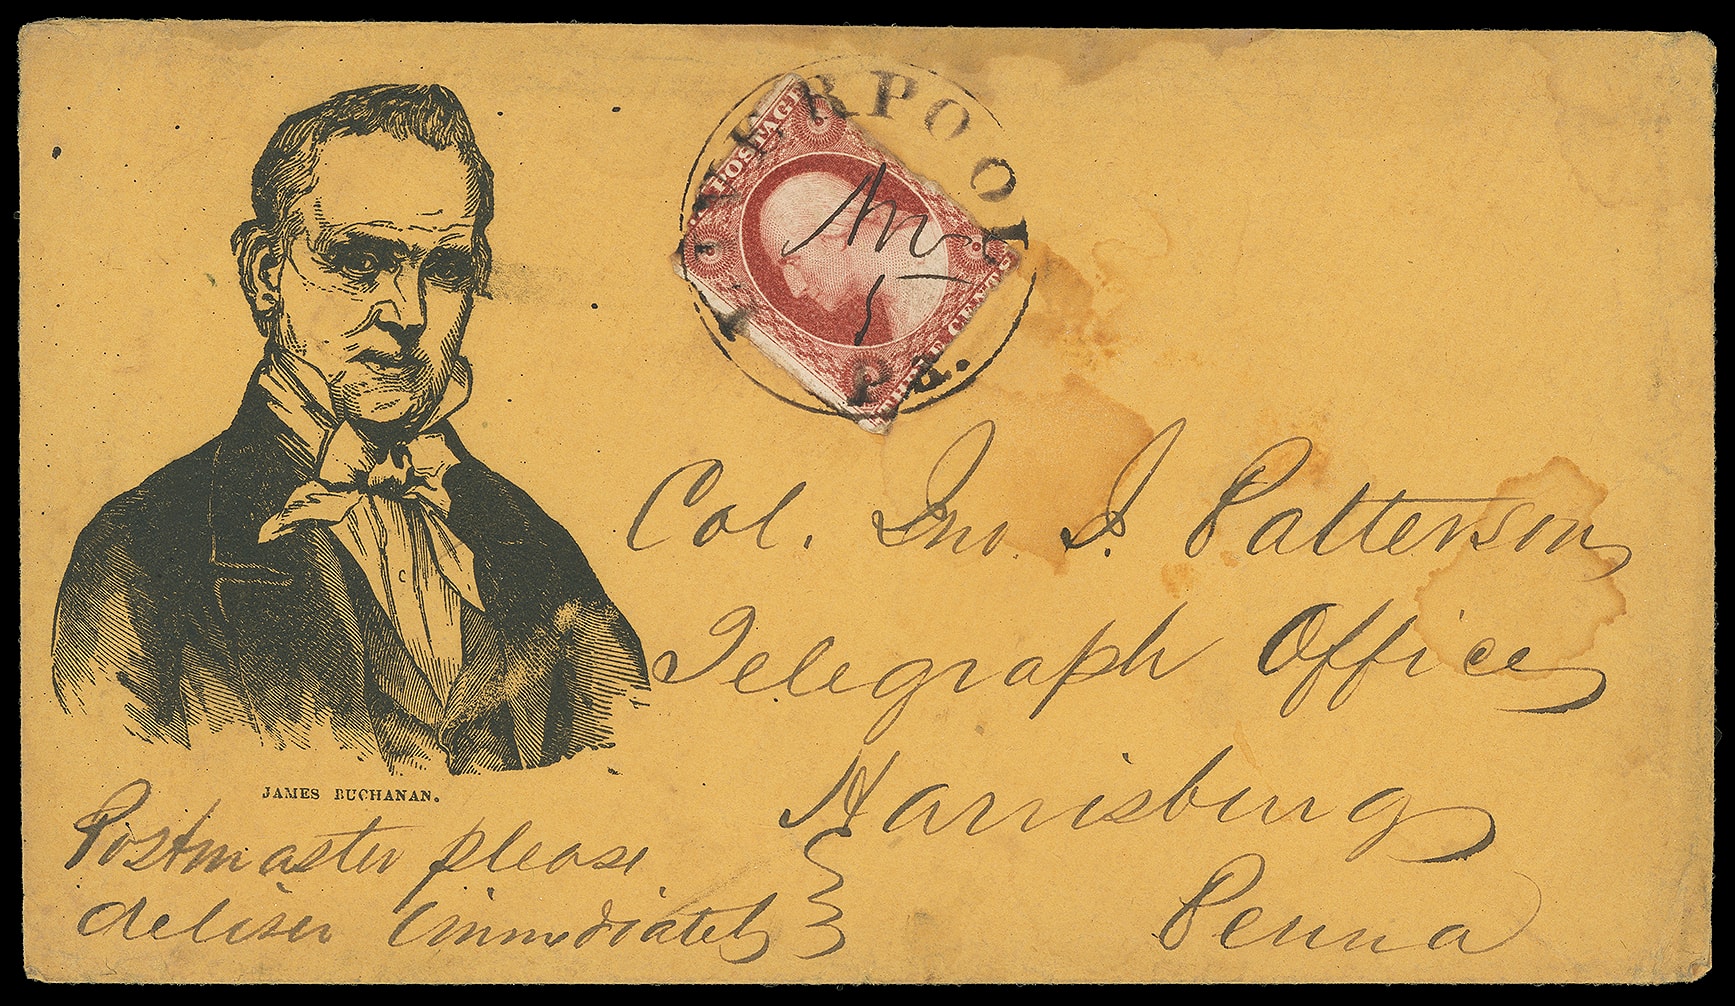 LIVERPOOL
Pa.
POSTAGE
THREE CENTS
5
Col. Jno. J. Patterson
Telegraph Office
Harrisburg
Penna
JAMES BUCHANAN.
Postmaster please
deliver immediately